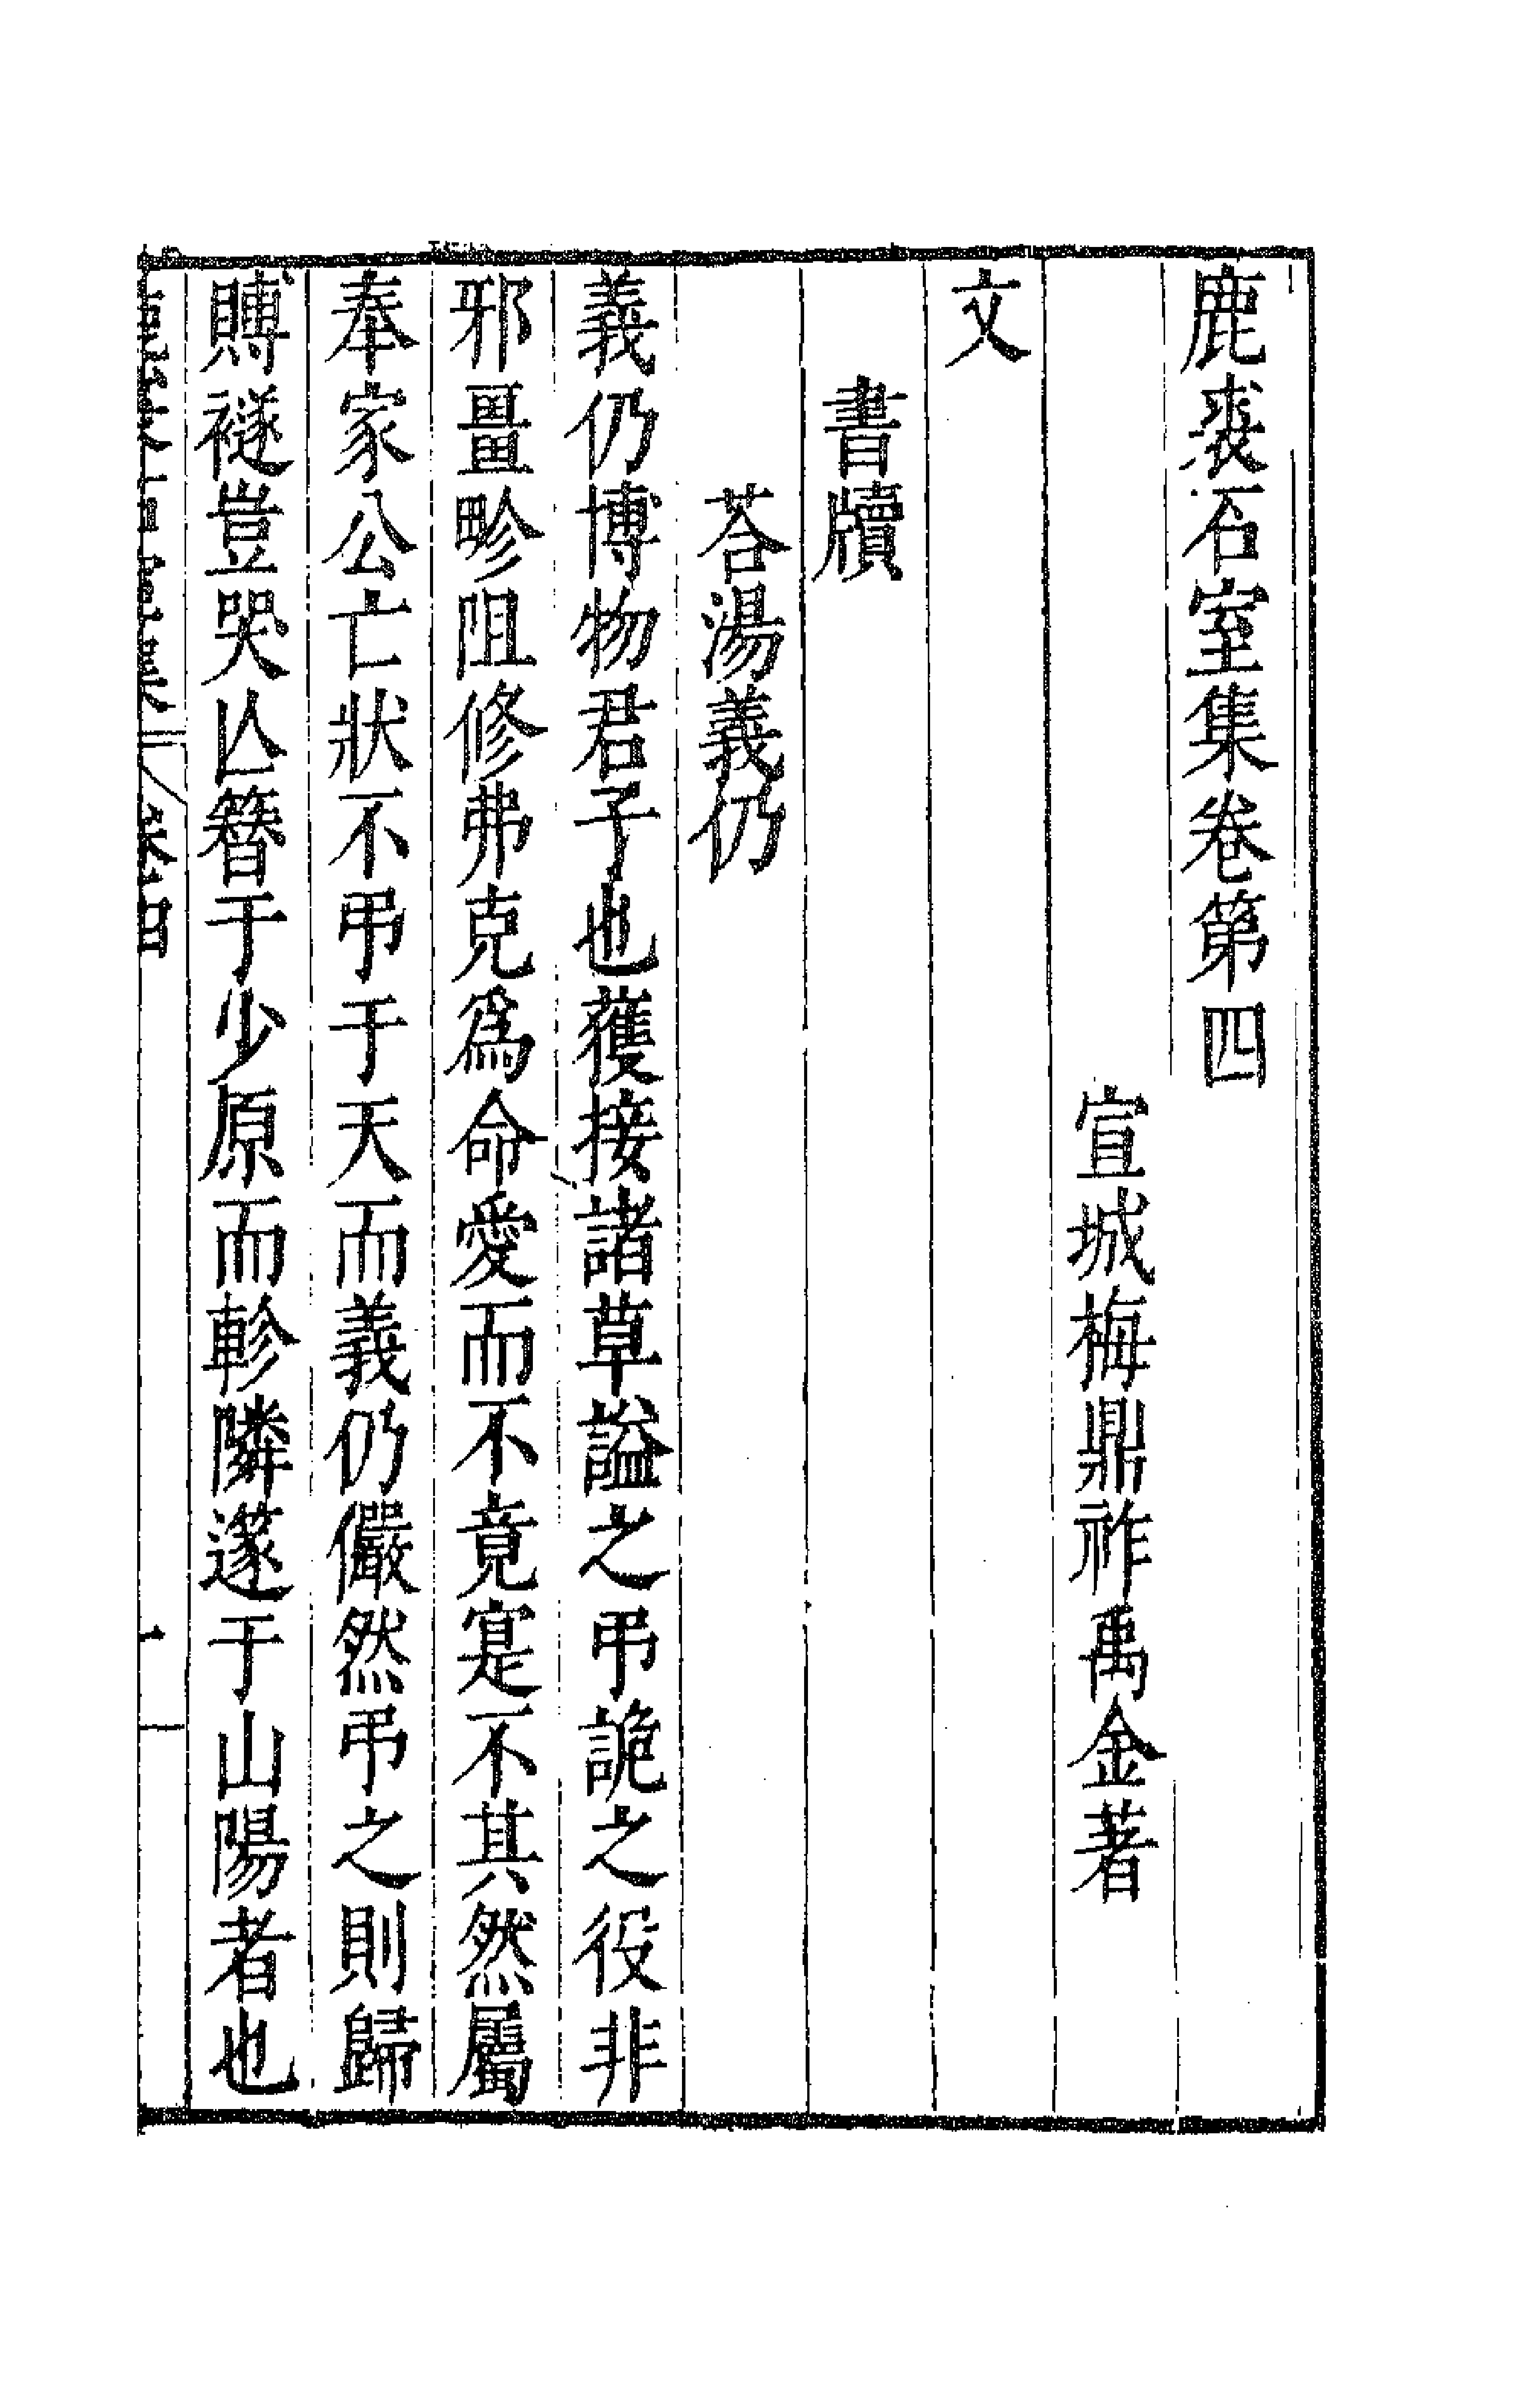 鹿裘石室集卷第四
宣城梅鼎祚禹金著
文
書牘
荅湯義仍
義仍博物君子也獲接諸草謚之弔詭之役非
邪畺畛阻修弗克爲命愛而不竟寔不其然屬
奉家公亡狀不弔于天而義仍儼然弔之則歸
賻襚豈哭亾簪于少原而軫隣邃于山陽者也